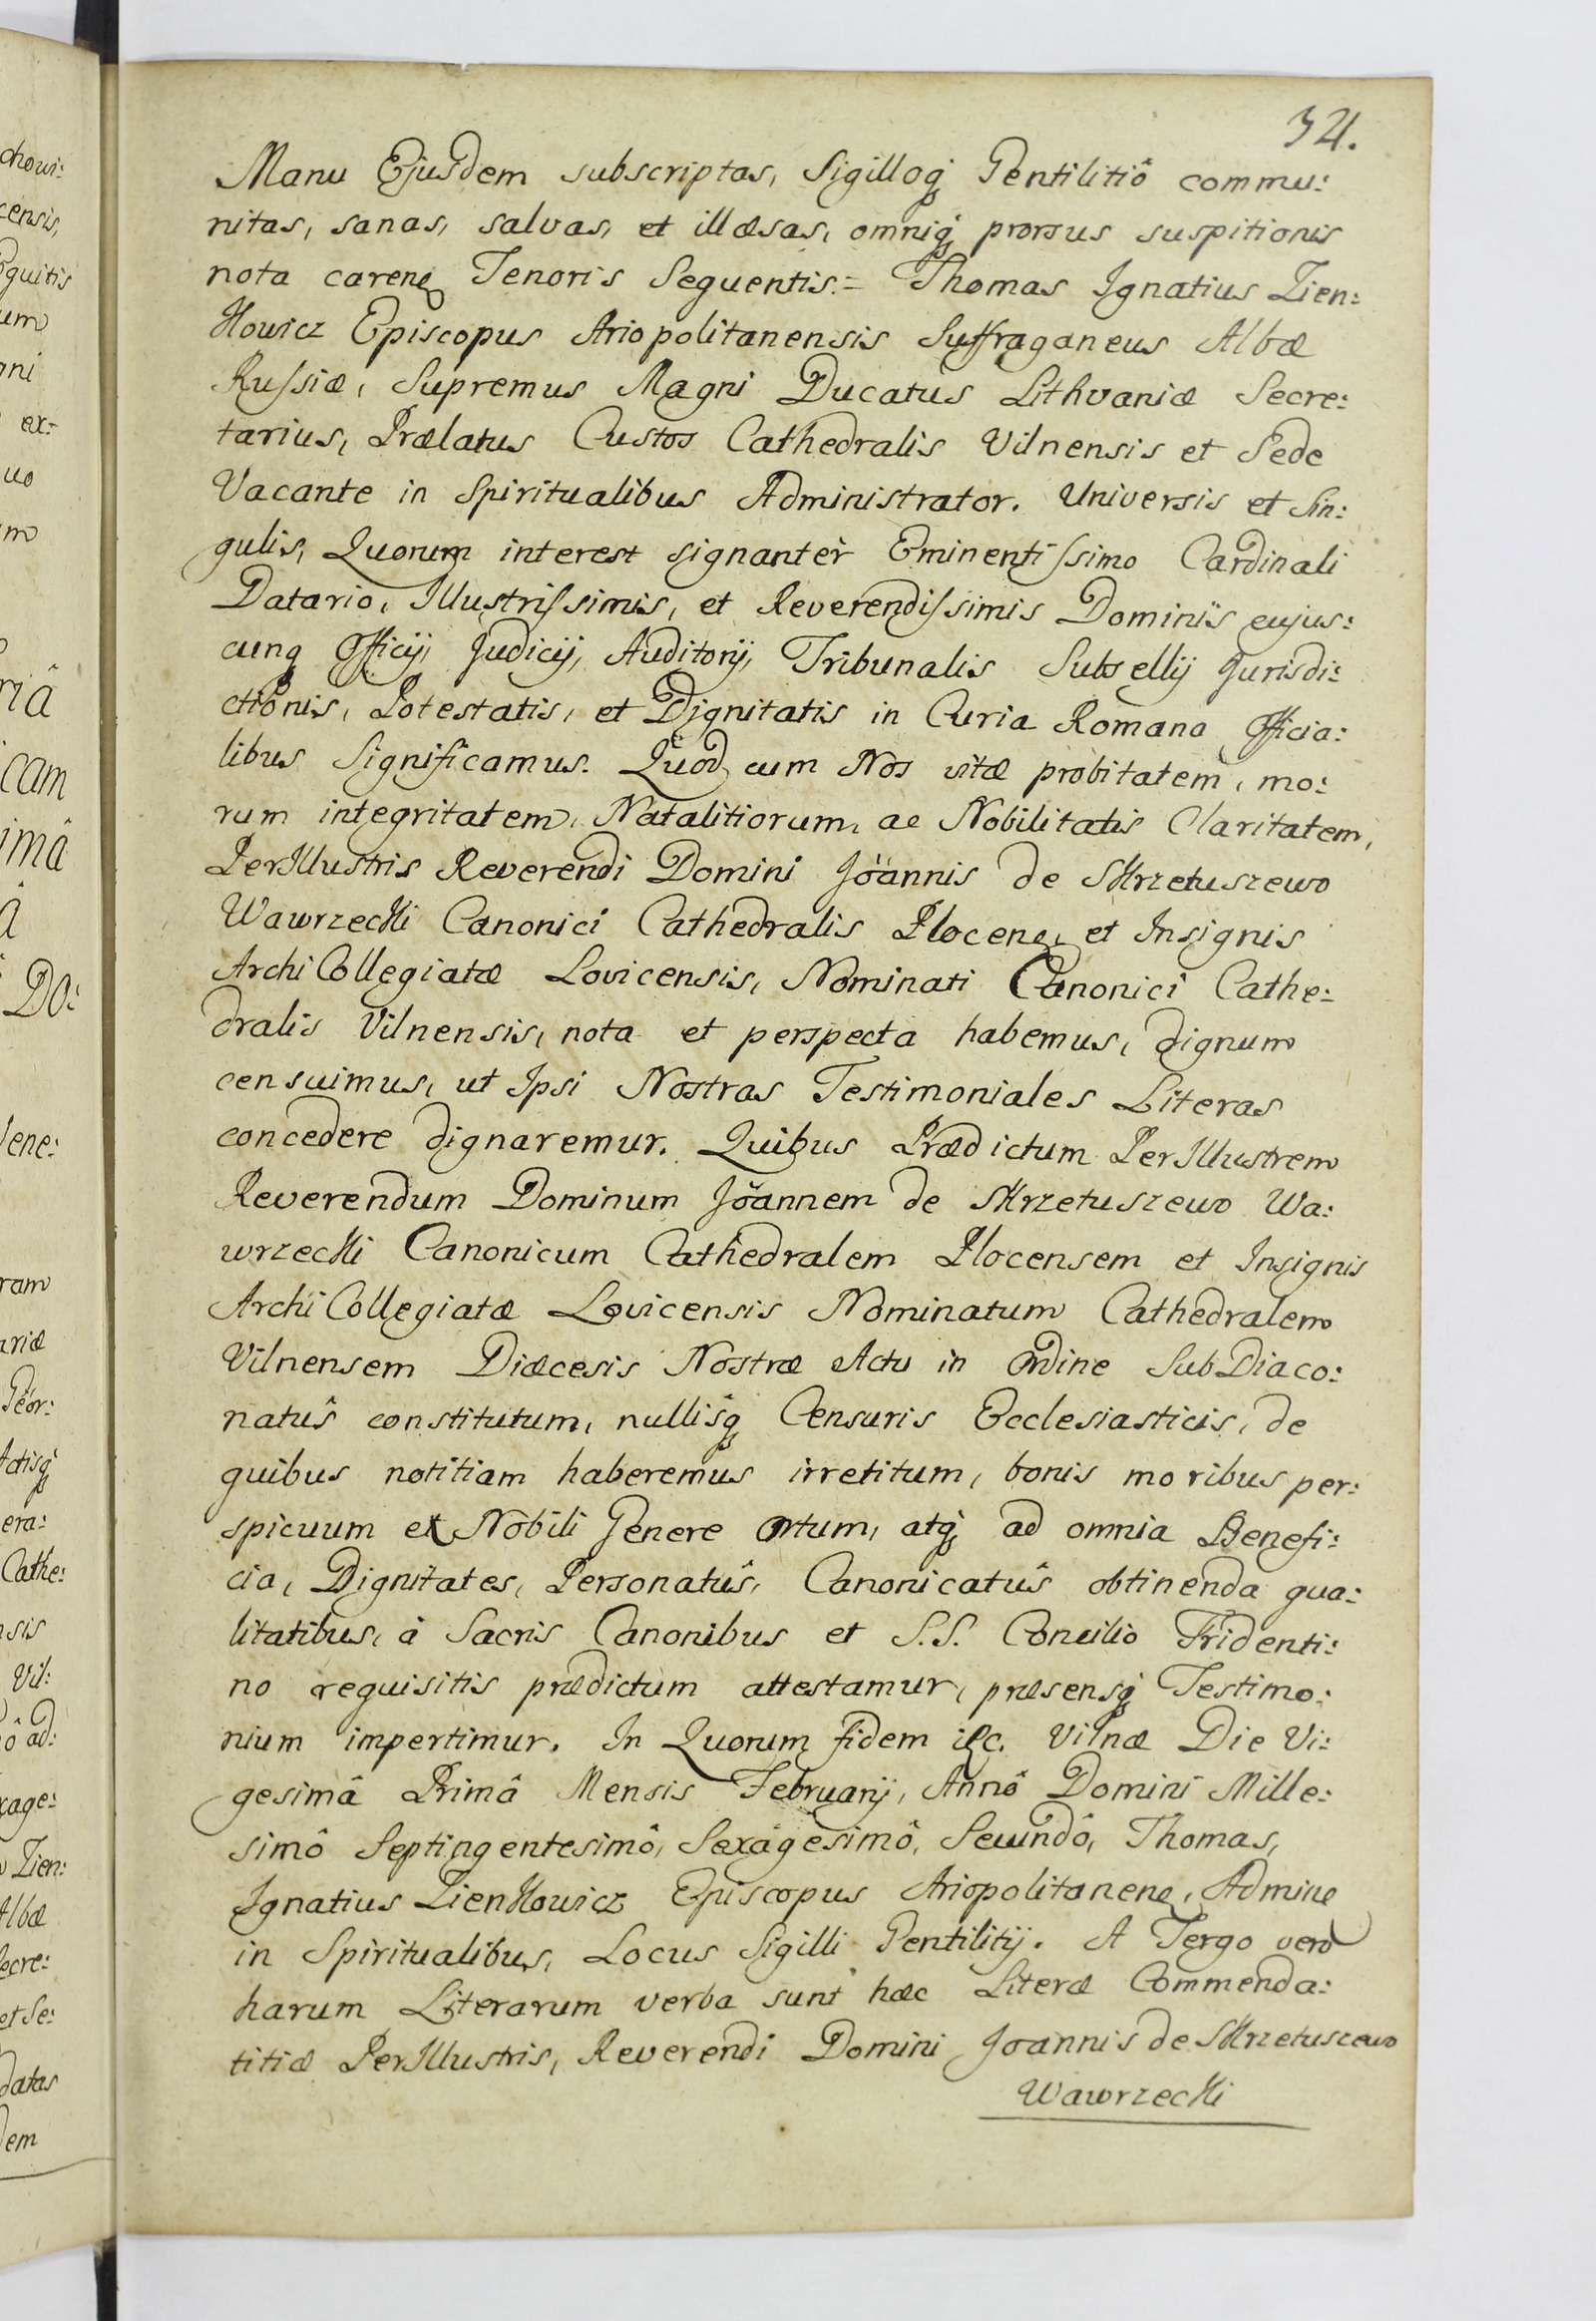 34.
Manu Ejusdem subscriptas, Sigilloq Gentilitiô commu:
nitas, sanas, salvas, et illæsas, omniq prorsus suspitionis
nota careneq Tenoris Sequentis = Thomas Ignatius Zien:
Kowicz Episcopus Ariopolitanensis Suffraganeus Albæ
Russiæ, Supremus Magni Ducatus Lithvaniæ Secre:
tarius, Prælatus Custos Cathedralis Vilnensis et Sede
Vacante in Spiritualibus Administrator. Universis et Sin:
gulis, Quorum interest signantèr Eminentissimo Cardinali
Datario, Illustrissimis, et Reverendissimis Dominis cujus:
cunq Officij, Judicij, Auditorij, Tribunalis Subsellij Jurisdi:
ctionis, Potestatis, et Dignitatis in Curia Romana Officia:
libus Significamus. Quod cum Nos vitæ probitatem, mo:
rum integritatem, Natalitiorum, ac Nobilitatis Claritatem,
PerIllustris Reverendi Domini Joännis de SKrzetuszewo
WawrzecKi Canonici Cathedralis Plocene, et Insignis
ArchiCollegiatæ Lovicensis, Nominati Canonici Cathe:
dralis Vilnensis, nota et perspecta habemus, dignum
censuimus, ut Ipsi Nostras Testimoniales Literas
concedere dignaremur. Quibus Prædictum PerIllustrem
Reverendum Dominum Joännem de SKrzetuszewo Wa:
wrzecKi Canonicum Cathedralem Plocensem et Insignis
ArchiCollegiatæ Lovicensis Nominatum Cathedralem
Vilnensem Diæcesis Nostræ Actu in Ordine SubDiaco:
natûs constitutum, nullisq Censuris Ecclesiasticis, de
quibus notitiam haberemus irretitum, bonis moribus per:
spicuum et Nobili Genere Ortum, atq ad omnia Benefi:
cia, Dignitates, Personatûs, Canonicatûs obtinenda qua:
litatibus, à Sacris Canonibus et S.S. Concilio Tridenti:
no requisitis prædictum attestamur, præsensq Testimo:
nium impertimur. In Quorum fidem etc. Vilnæ Die Vi:
gesimâ Primâ Mensis Februarij, Annô Domini Mille:
simô Septingentesimô, Sexagesimô, Secundô, Thomas,
Ignatius ZienKowicz Episcopus Ariopolitanene, Admine
in Spiritualibus, Locus Sigilli Gentilitij. A Tergo verò
harum Literarum verba sunt hæc Literæ Commenda:
titiæ PerIllustris, Reverendi Domini Joannis de SKrzetuszewo
WawrzecKi